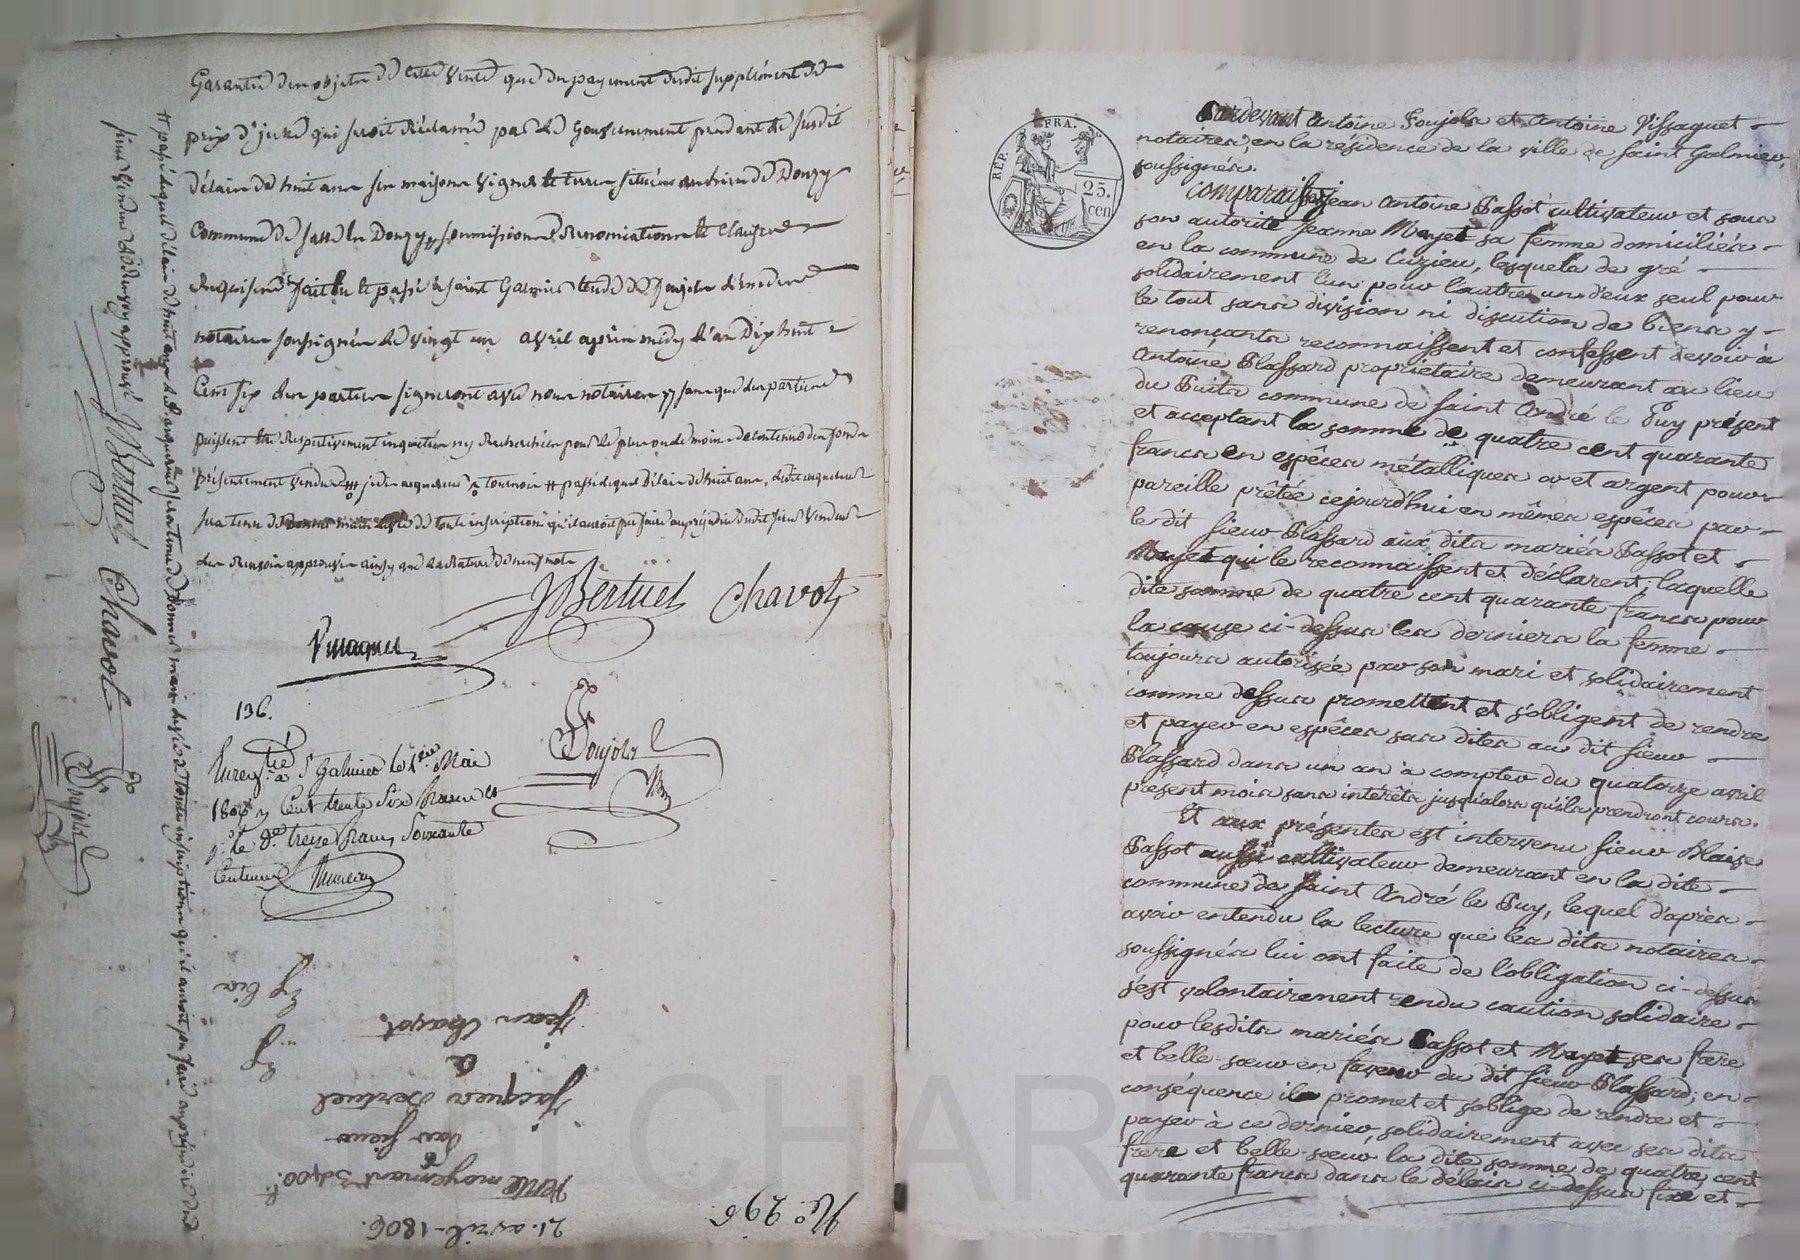 Garantie des objets de cette vente que du payement dudit supplément de
prix d'jcelle qui seroit réclamé par le Gouvernement pendant le susdit
délai de huit ans ses maisons vignes et terres situées audit lieu de Donzy
Commune de Salt en Donzy, soumissions Renonciations et Clauses
Requises fait lu et passé à saint Galmier Etude de Poujols l'un des
notaires soussignés le vingt un avril après midy l'an Dix huit
Cent six les parties signeront avec nous notaires sans que les parties
puissent être respectivement inquiétées ny Recherchées pour le plus ou le moins de contenue des fonds
présentement vendus jcelui acquereur tournois # passé lequel délai de huit ans, ledit acquereur
sera tenu de de toute inscription qu'il auroit pu faire au préjudice dudit sieur vendeur
les Renvois approuvés ainsy que la Rature de neuf mots
JBertuel Chavot
Vissaguet
Poujols
Nre
136.
Enregtré à St Galmier le 1er Mai
1806 Reçu Cent trente Six francs et
pr le 8e treize francs Soixante
Centimes
# passé lequel délai de huit ans ledit acquereur sera tenu de donner main levée de toute inscription qu'il auroit pu faire au préjudice dud
sieur vendeur Renvoy approuvé JBertuel Chavot Poujols
No. 296.
21. avril 1806.
Vente moyennant 3400f.
Par sieur
Jacques Bertuel
à
Jean Chavot.
REP. FRA.
25.
cen
Pardevant Antoine Poujols et Antoine Vissaguet
notaires, en la résidence de la ville de Saint Galmier,
soussignés.
Comparaissent Jean Antoine Passot cultivateur et sous
son autorité Jeanne Mayet sa femme domiciliés
en la commune de Cuzieu, lesquels de gré
solidairement l'un pour l'autre, un d'eux seul pour
le tout sans division ni discution de biens y
renonçants reconnaissent et confessent devoir à
Antoine Plassard propriétaire demeurant au lieu
du Puits commune de Saint André le Puy présent
et acceptant la somme de quatre cent quarante
francs en espèces métalliques or et argent pour
pareille prêtée cejourd'hui en mêmes espèces par
le dit Sieur Plassard aux dits mariés Passot et
Mayet qui le reconnaissent et déclarent; laquelle
dite somme de quatre cent quarante francs pour
la cause ci-dessus les derniers la femme
toujours autorisée par son mari et solidairement
comme dessus promettent et s'obligent de rendre
et payer en espèces sus dites au dit Sieur
Plassard dans un an à compter du quatorze avril
présent mois sans intérêts jusqu'alors qu'ils prendront cours.
Et aux présentes est intervenu Sieur Blaise
Passot aussi cultivateur demeurant en la dite
commune de Saint André le Puy, lequel d'après
avoir entendu la lecture que les dits notaires
soussignés lui ont faite de l'obligation ci-dessus
s'est volontairement rendu caution solidaire
pour lesdits mariés Passot et Mayet ses frère
et belle-sœur en faveur du dit Sieur Plassard; en
conséquence il promet et s'oblige de rendre et
payer à ce dernier, solidairement avec ses dits
frère et belle-sœur, la dite somme de quatre cent
quarante francs dans le délai ci-dessus fixé et